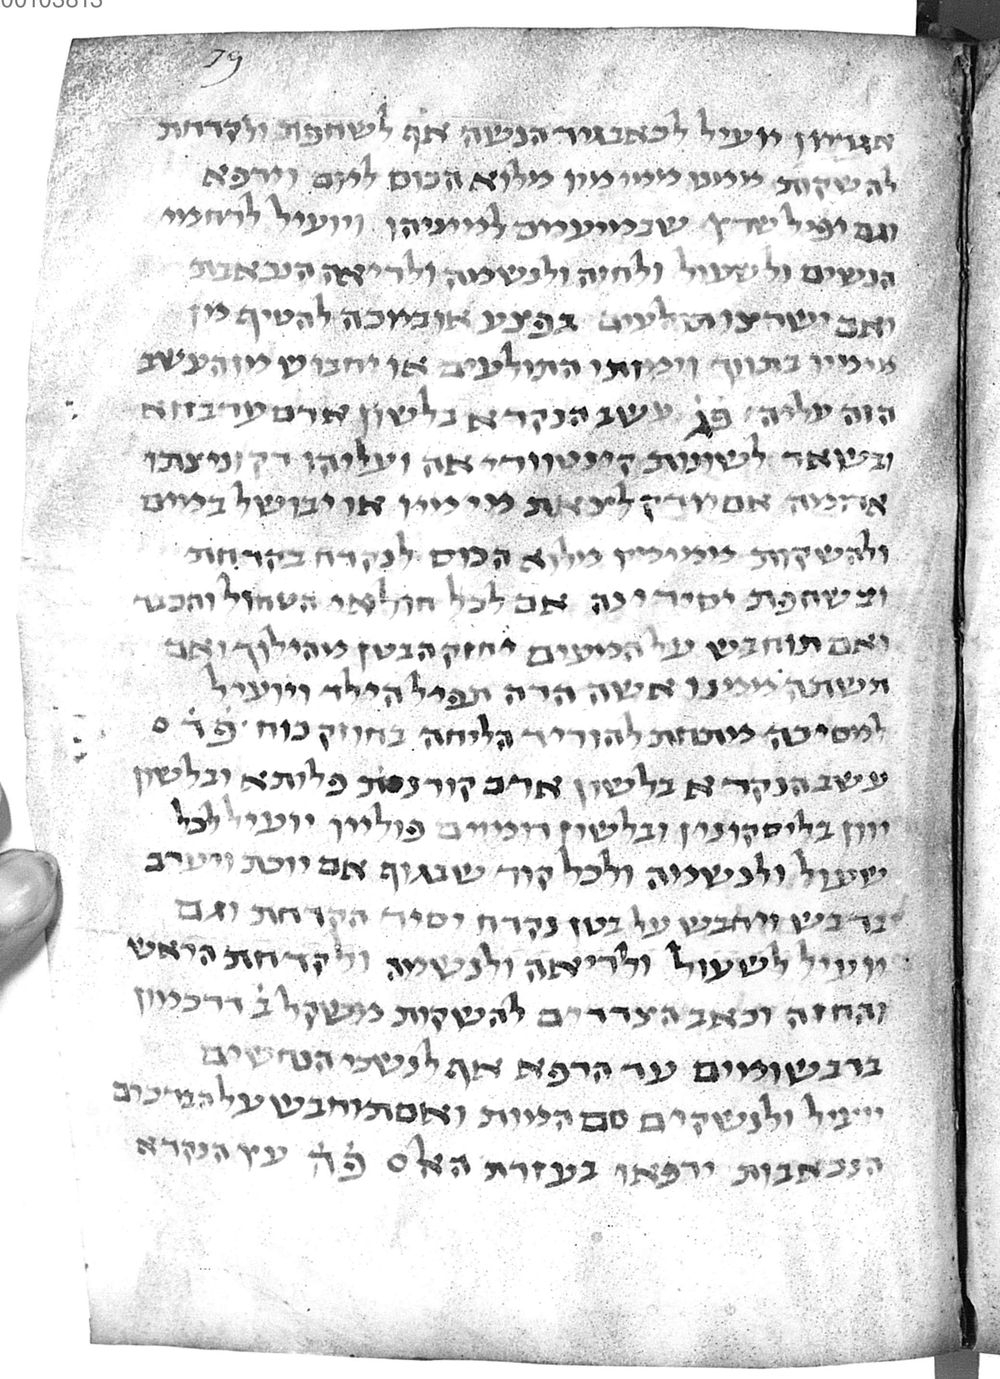 00103813
79
אגריון יועיל לכאב גיד הנשה אף לשחפת ולקדחת
להשקות ממנו ממימיו מלוא הכוס לחם וירפא
וגם יפיל שרץ שבמיעיים למיניהן ויועיל לרחמי
הנשים ולשעול ולחזה ולנשמה ולריאה הנכאבת
ואם ישרצו תולעים בפצע או במכה להטיף מן
מימיו בתוך וימותו התולעים או יחבוש מן העשב
הזה עליה פ֗ג֗ עשב הנקרא בלשון ארם ערבזוא
ובשאר לשונות קינטווריאה ועליהו דק וניצתו
אדמה אם יודק ליצאת מימיו או יבושל במים
ולהשקות ממימיו מלוא הכוס לנקדח בקדחת
ובשחפת יסירינה אם לכל חולאי הטחול והכבד
ואם תוחבש על המעים יחזק הבטן מהילוך ואם
תשתה ממנו אשה הרה תפיל הילד ויועיל
למסיכה מתחת להוריד הליחה בחוזק כוח פ֗ד֗ ס
עשב הנקרא בלשון ארם קורנית פליתא ובלשון
יוון בליסקונין ובלשון רומיים פולייו יועיל לכל
שעול ולנשמה ולכל קור שבגוף אם יוכת ויערב
בדבש ויחבש על בטן נקדח יסיר הקדחת וגם
יועיל לשעול ולריאה ולנשמה ולקדחת הראש
והחזה וכאב הצדדים להשקות משקל ב֗ דרכמון
בדבש ומים עד הרפא אף לנשכי הנחשים
יועיל ולנשקים סם המות ואם תוחבש על הברכים
הנכאבות ירפאו בעזרת האל ס פ֗ה֗ עץ הנקרא